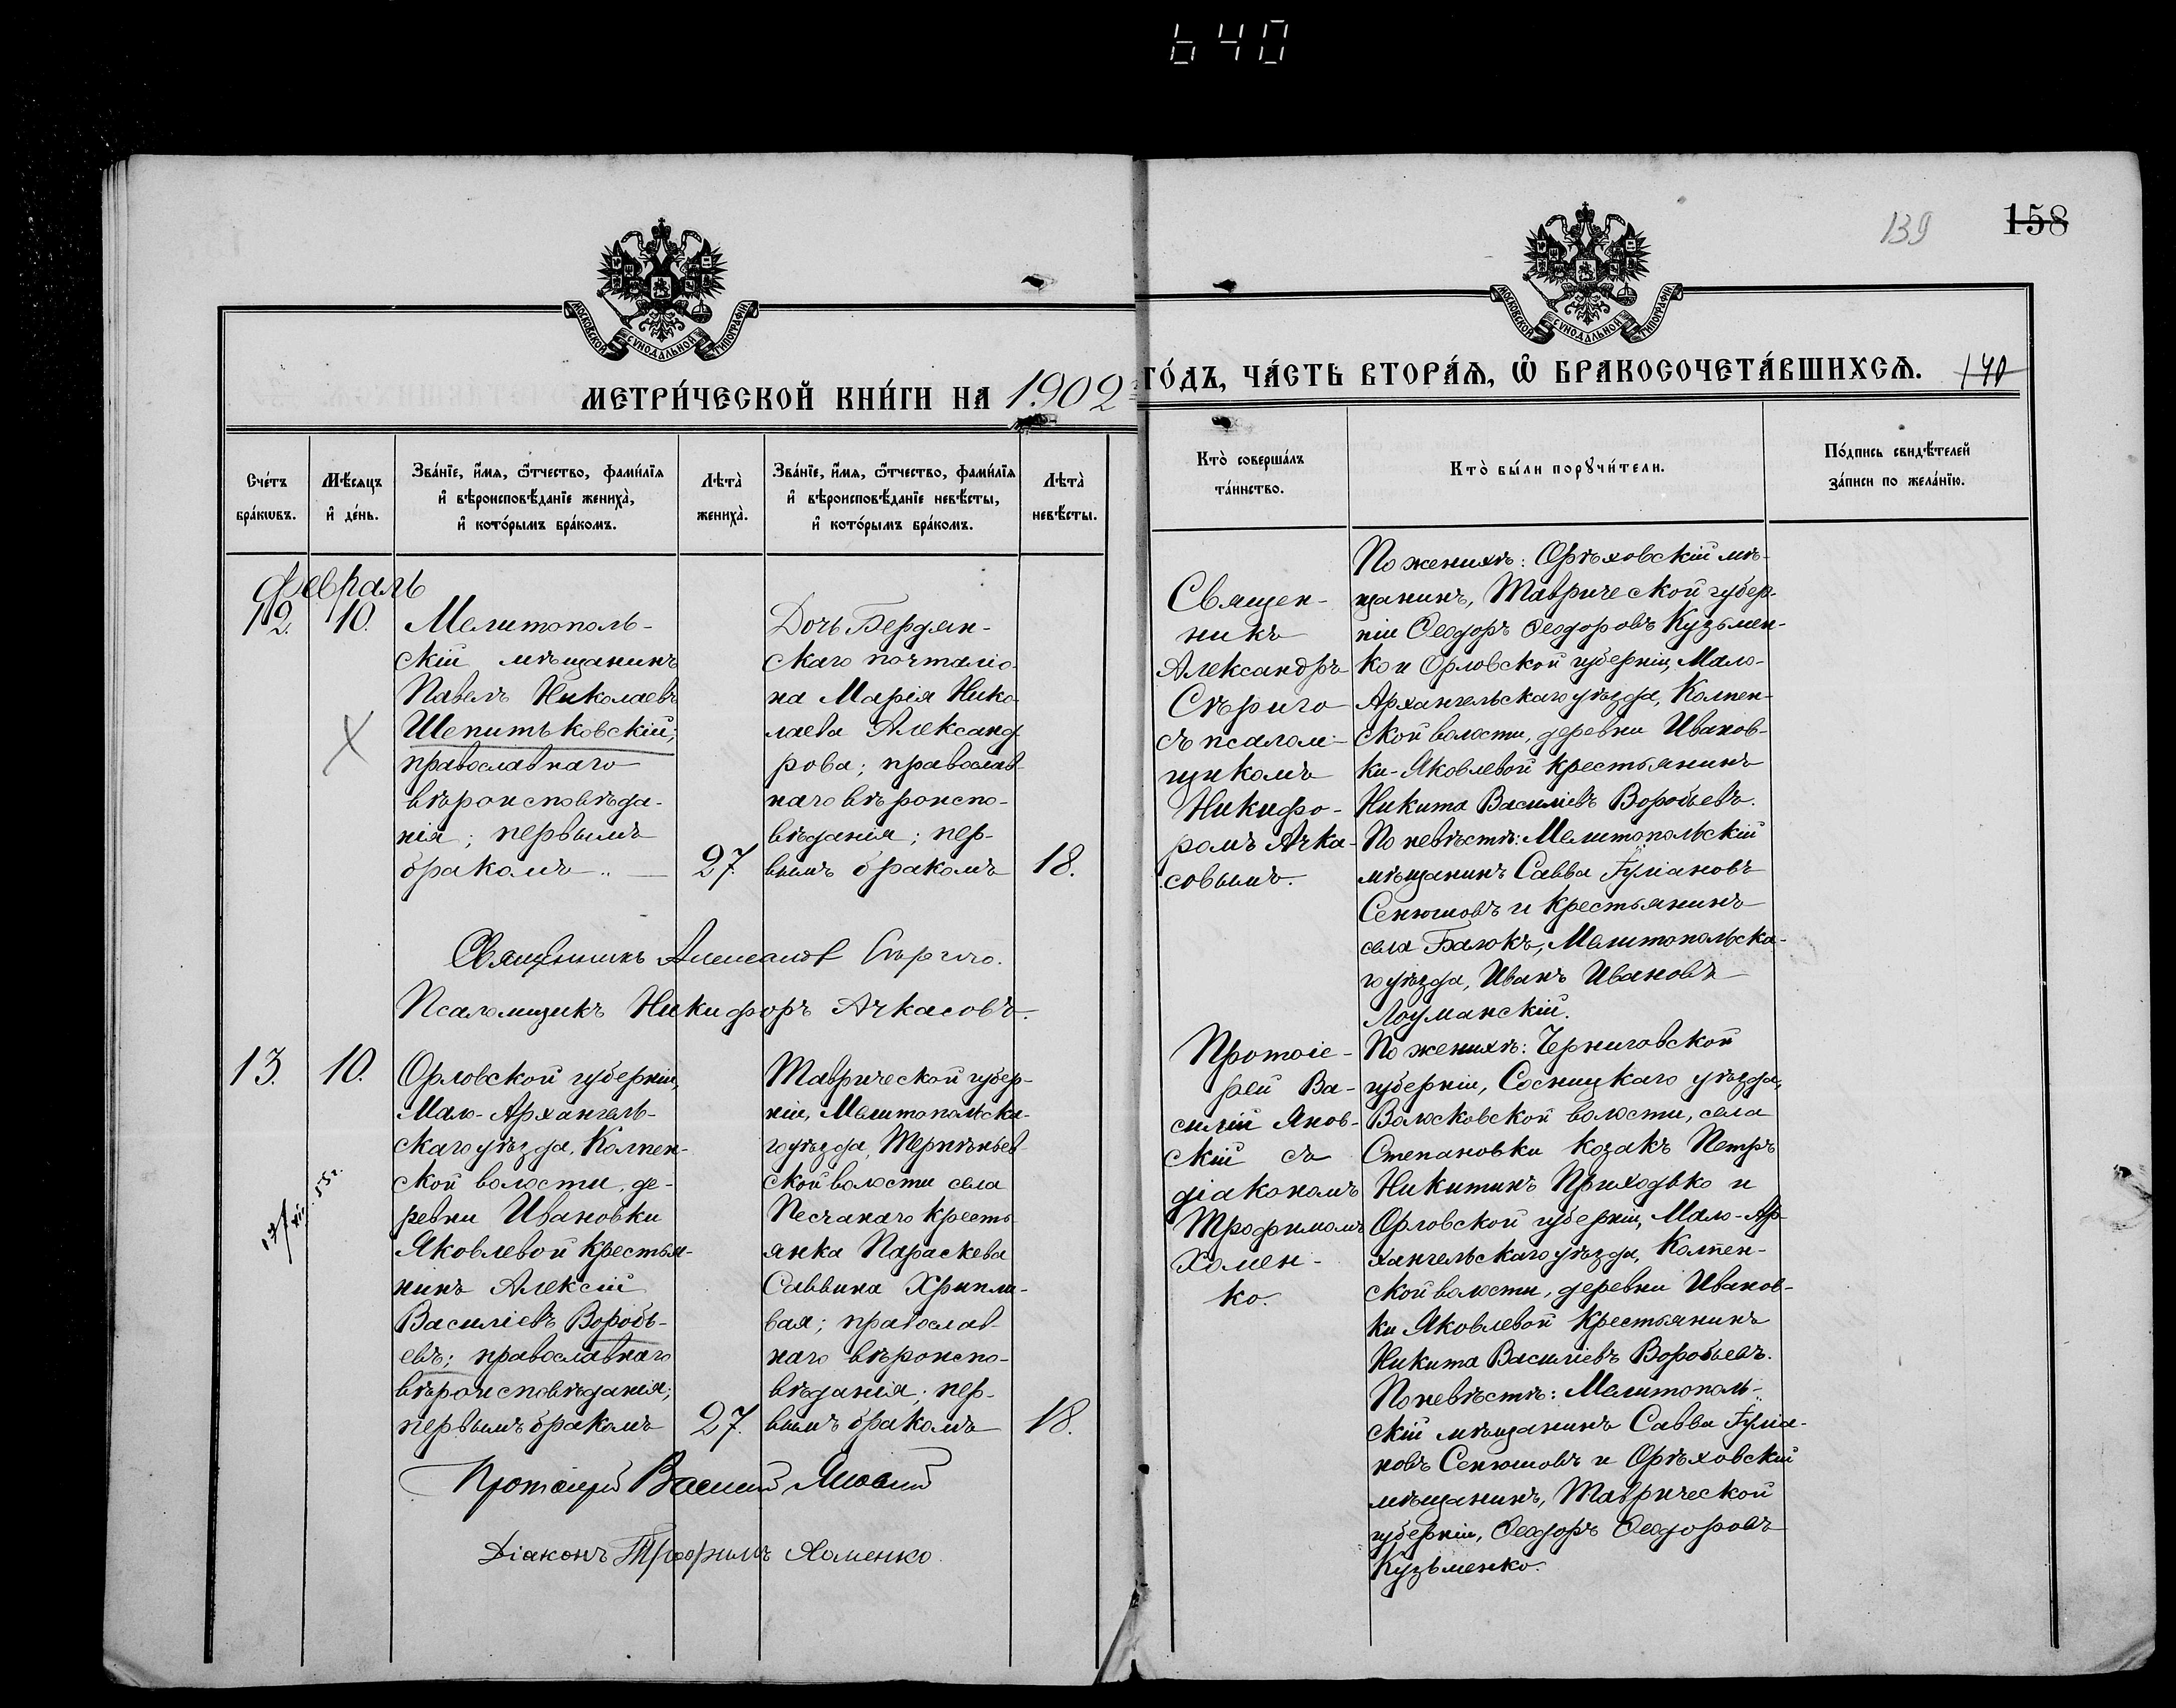 640
139
158
МОСКОВСКОЙ СУНОДАЛЬНОЙ ТИПОГРАФІИ
МОСКОВСКОЙ СУНОДАЛЬНОЙ ТИПОГРАФІИ
МЕТРИ́ЧЕСКОЙ КНИ́ГИ НА 1902 ГО́ДЪ, ЧА́СТЬ ВТОРА́Ѧ, Ѽ БРАКОСОЧЕТА́ВШИХСѦ.
140
Сче́тъ
бра́кѡвъ.
Мѣ́сяцъ
и҆ де́нь.
Зва́нїе, и҆́мя, ѻ҆́тчество, фами́лїя
и҆ вѣроисповѣ́данїе жениха̀,
и҆ кото́рымъ бра́комъ.
Лѣта̀
жениха̀.
Зва́нїе, и҆́мя, ѻ҆́тчество, фами́лїя
и҆ вѣроисповѣ́данїе невѣ́сты,
и҆ кото́рымъ бра́комъ.
Лѣта̀
невѣ́сты.
Кто̀ соверша́лъ
та́инство.
Кто̀ бы́ли порꙋчи́тели.
По́дпись свидѣ́телей
за́писи по жела́нїю.
Февраль
12.
10.
Мелитополь-
скій мѣщанинъ
Павелъ Николаевъ
Шепитьковскій;
православнаго
вѣроисповѣда-
нія; первымъ
бракомъ..
27.
Дочь Бердян-
скаго почталіо-
на Марія Нико-
лаева Александ-
рова; православ-
наго вѣроиспо-
вѣданія; пер-
вымъ бракомъ
18.
Священ-
никъ
Александръ
Сѣриго
съ псалом-
щикомъ
Никифо-
ромъ Ачка-
совымъ.
По женихѣ: Орѣховскій мѣ-
щанинъ, Таврической губер-
ніи Ѳеодоръ Ѳеодоровъ Кузьмен-
ко и Орловской губерніи, Мало-
Архангельскаго уѣзда, Колпен-
ской волости, деревни Иванов-
ки-Яковлевой крестьянинъ
Никита Василіевъ Воробьевъ.
По невѣстѣ: Мелитопольскій
мѣщанинъ Савва Іуліановъ
Сенюшовъ и крестьянинъ
села Балокъ, Мелитопольска-
го уѣзда, Иванъ Ивановъ
Лоуманскій.
Священникъ Александръ Сѣриго.
Псаломщикъ Никифоръ Ачкасовъ.
13.
10.
Орловской губерніи,
Мало-Архангель-
скаго уѣзда, Колпен-
ской волости, де-
ревни Ивановки
Яковлевой крестья-
нинъ Алексій
Василіевъ Воробь-
евъ; православнаго
вѣроисповѣданія;
первымъ бракомъ
27.
Таврической губер-
ніи, Мелитопольска-
го уѣзда, Терпѣньев-
ской волости села
Песчанаго кресть-
янка Параскева
Саввина Хрипли-
вая; православ-
наго вѣроиспо-
вѣданія; пер-
вымъ бракомъ
18.
Протоіе-
рей Ва-
силій Янов-
скій съ
діакономъ
Трофимомъ
Хомен-
ко.
По женихѣ: Черниговской
губерніи, Сосницкаго уѣзда,
Волосковской волости, села
Степановки козакъ Петръ
Никитинъ Приходько и
Орловской губерніи, Мало-Ар-
хангельскаго уѣзда, Колпен-
ской волости, деревни Иванов-
ки Яковлевой крестьянинъ
Никита Василіевъ Воробьевъ.
По невѣстѣ: Мелитополь-
скій мѣщанинъ Савва Іуліа-
новъ Сенюшовъ и Орѣховскій
мѣщанинъ, Таврической
губерніи, Ѳеодоръ Ѳеодоровъ
Кузьменко.
Протоіерей Василій Яновскій
Діаконъ Трофимъ Хоменко.